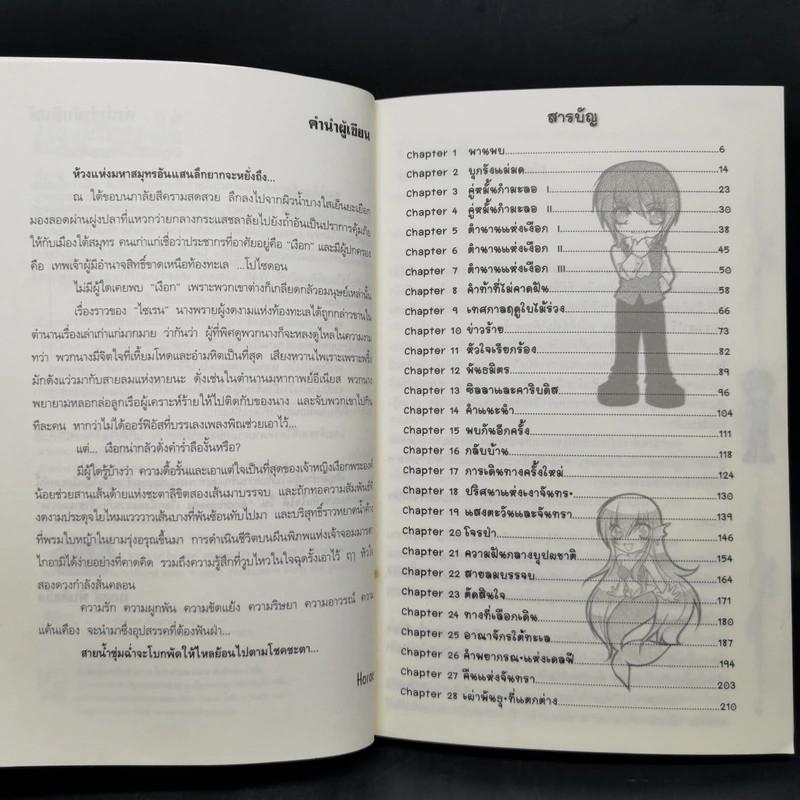 คำนำผู้เขียน
ห้วงแห่งมหาสมุทรอันแสนลึกยากจะหยั่งถึง...
ณ ใต้ขอบนภาลัยสีครามสดสวย ลึกลงไปจากผิวน้ำบางใสเย็นยะเยือก
มองลอดผ่านฝูงปลาที่แหวกว่ายกลางกระแสชลาลัยไปยังถ้ำอันเป็นปราการคุ้มภัย
ให้กับเมืองใต้สมุทร คนเก่าแก่เชื่อว่าประชากรที่อาศัยอยู่คือ “เงือก” และมีผู้ปกครอง
คือ เทพเจ้าผู้มีอำนาจสิทธิ์ขาดเหนือท้องทะเล ...โปไซดอน
ไม่มีผู้ใดเคยพบ “เงือก” เพราะพวกเขาต่างก็เกลียดกลัวมนุษย์เหล่านั้น
เรื่องราวของ “ไซเรน” นางพรายผู้งดงามแห่งท้องทะเลได้ถูกกล่าวขานใน
ตำนานเรื่องเล่าเก่าแก่มากมาย ว่ากันว่า ผู้ที่พิศดูพวกนางก็จะหลงดูไหลในความงาม
ทว่า พวกนางมีจิตใจที่เหี้ยมโหดและอำมหิตเป็นที่สุด เสียงหวานไพเราะเพราะพริ้ง
มักดังแว่วมากับสายลมแห่งหายนะ ดั่งเช่นในตำนานมหากาพย์อีเนียส พวกนาง
พยายามหลอกล่อลูกเรือผู้เคราะห์ร้ายให้ไปติดกับของนาง และจับพวกเขาไปกิน
ทีละคน หากว่าไม่ได้ออร์ฟิอัสที่บรรเลงเพลงพิณช่วยเอาไว้...
แต่... เงือกน่ากลัวดั่งคำร่ำลืองั้นหรือ?
มีผู้ใดรู้บ้างว่า ความดื้อรั้นและเอาแต่ใจเป็นที่สุดของเจ้าหญิงเงือกพระองค์
น้อยช่วยสานเส้นด้ายแห่งชะตาลิขิตสองเส้นมาบรรจบ และถักทอความสัมพันธ์ที่
งดงามประดุจใยไหมแวววาวเส้นบางที่พันซ้อนทับไปมา และบริสุทธิ์ราวหยาดน้ำค้าง
ที่พรมใบหญ้าในยามรุ่งอรุณขึ้นมา การดำเนินชีวิตบนผืนพิภพแห่งเจ้าจอมมารดา
ไกอามิได้ง่ายอย่างที่คาดคิด รวมถึงความรู้สึกที่วูบไหวในใจฉุดรั้งเอาไว้ ฤๅ หัวใจ
สองดวงกำลังสั่นคลอน
ความรัก ความผูกพัน ความขัดแย้ง ความริษยา ความอาวรณ์
แค้นเคือง จะนำมาซึ่งอุปสรรคที่ต้องฟันฝ่า...
สายน้ำชุ่มฉ่ำจะโบกพัดให้ไหลย้อนไปตามโชคชะตา...
สารบัญ
Chapter 1 พานพบ 6
Chapter 2 บุกรังแม่มด 14
Chapter 3 คู่หมั้นกำมะลอ I 23
Chapter 4 คู่หมั้นกำมะลอ II 30
Chapter 5 ตำนานแห่งเงือก I 38
Chapter 6 ตำนานแห่งเงือก II 45
Chapter 7 ตำนานแห่งเงือก III 50
Chapter 8 คำท้าที่ไม่คาดฝัน 58
Chapter 9 เทศกาลฤดูใบไม้ร่วง 66
Chapter 10 ข่าวร้าย 73
Chapter 11 หัวใจเรียกร้อง 82
Chapter 12 พันธมิตร 89
Chapter 13 ซิลลาและคาริบดิส 96
Chapter 14 คำแนะนำ 104
Chapter 15 พบกันอีกครั้ง 111
Chapter 16 กลับบ้าน 118
Chapter 17 การเดินทางครั้งใหม่ 124
Chapter 18 ปริศนาแห่งเงาจันทร์ 130
Chapter 19 แสงตะวันและจันทรา 139
Chapter 20 โจรป่า 146
Chapter 21 ความฝันกลางบุปผชาติ 154
Chapter 22 สายลมบรรจบ 164
Chapter 23 ตัดสินใจ 171
Chapter 24 ทางที่เลือกเดิน 180
Chapter 25 อาณาจักรใต้ทะเล 187
Chapter 26 คำพยากรณ์แห่งเดลฟี 194
Chapter 27 คืนแห่งจันทรา 203
Chapter 28 เผ่าพันธุ์ที่แตกต่าง 210